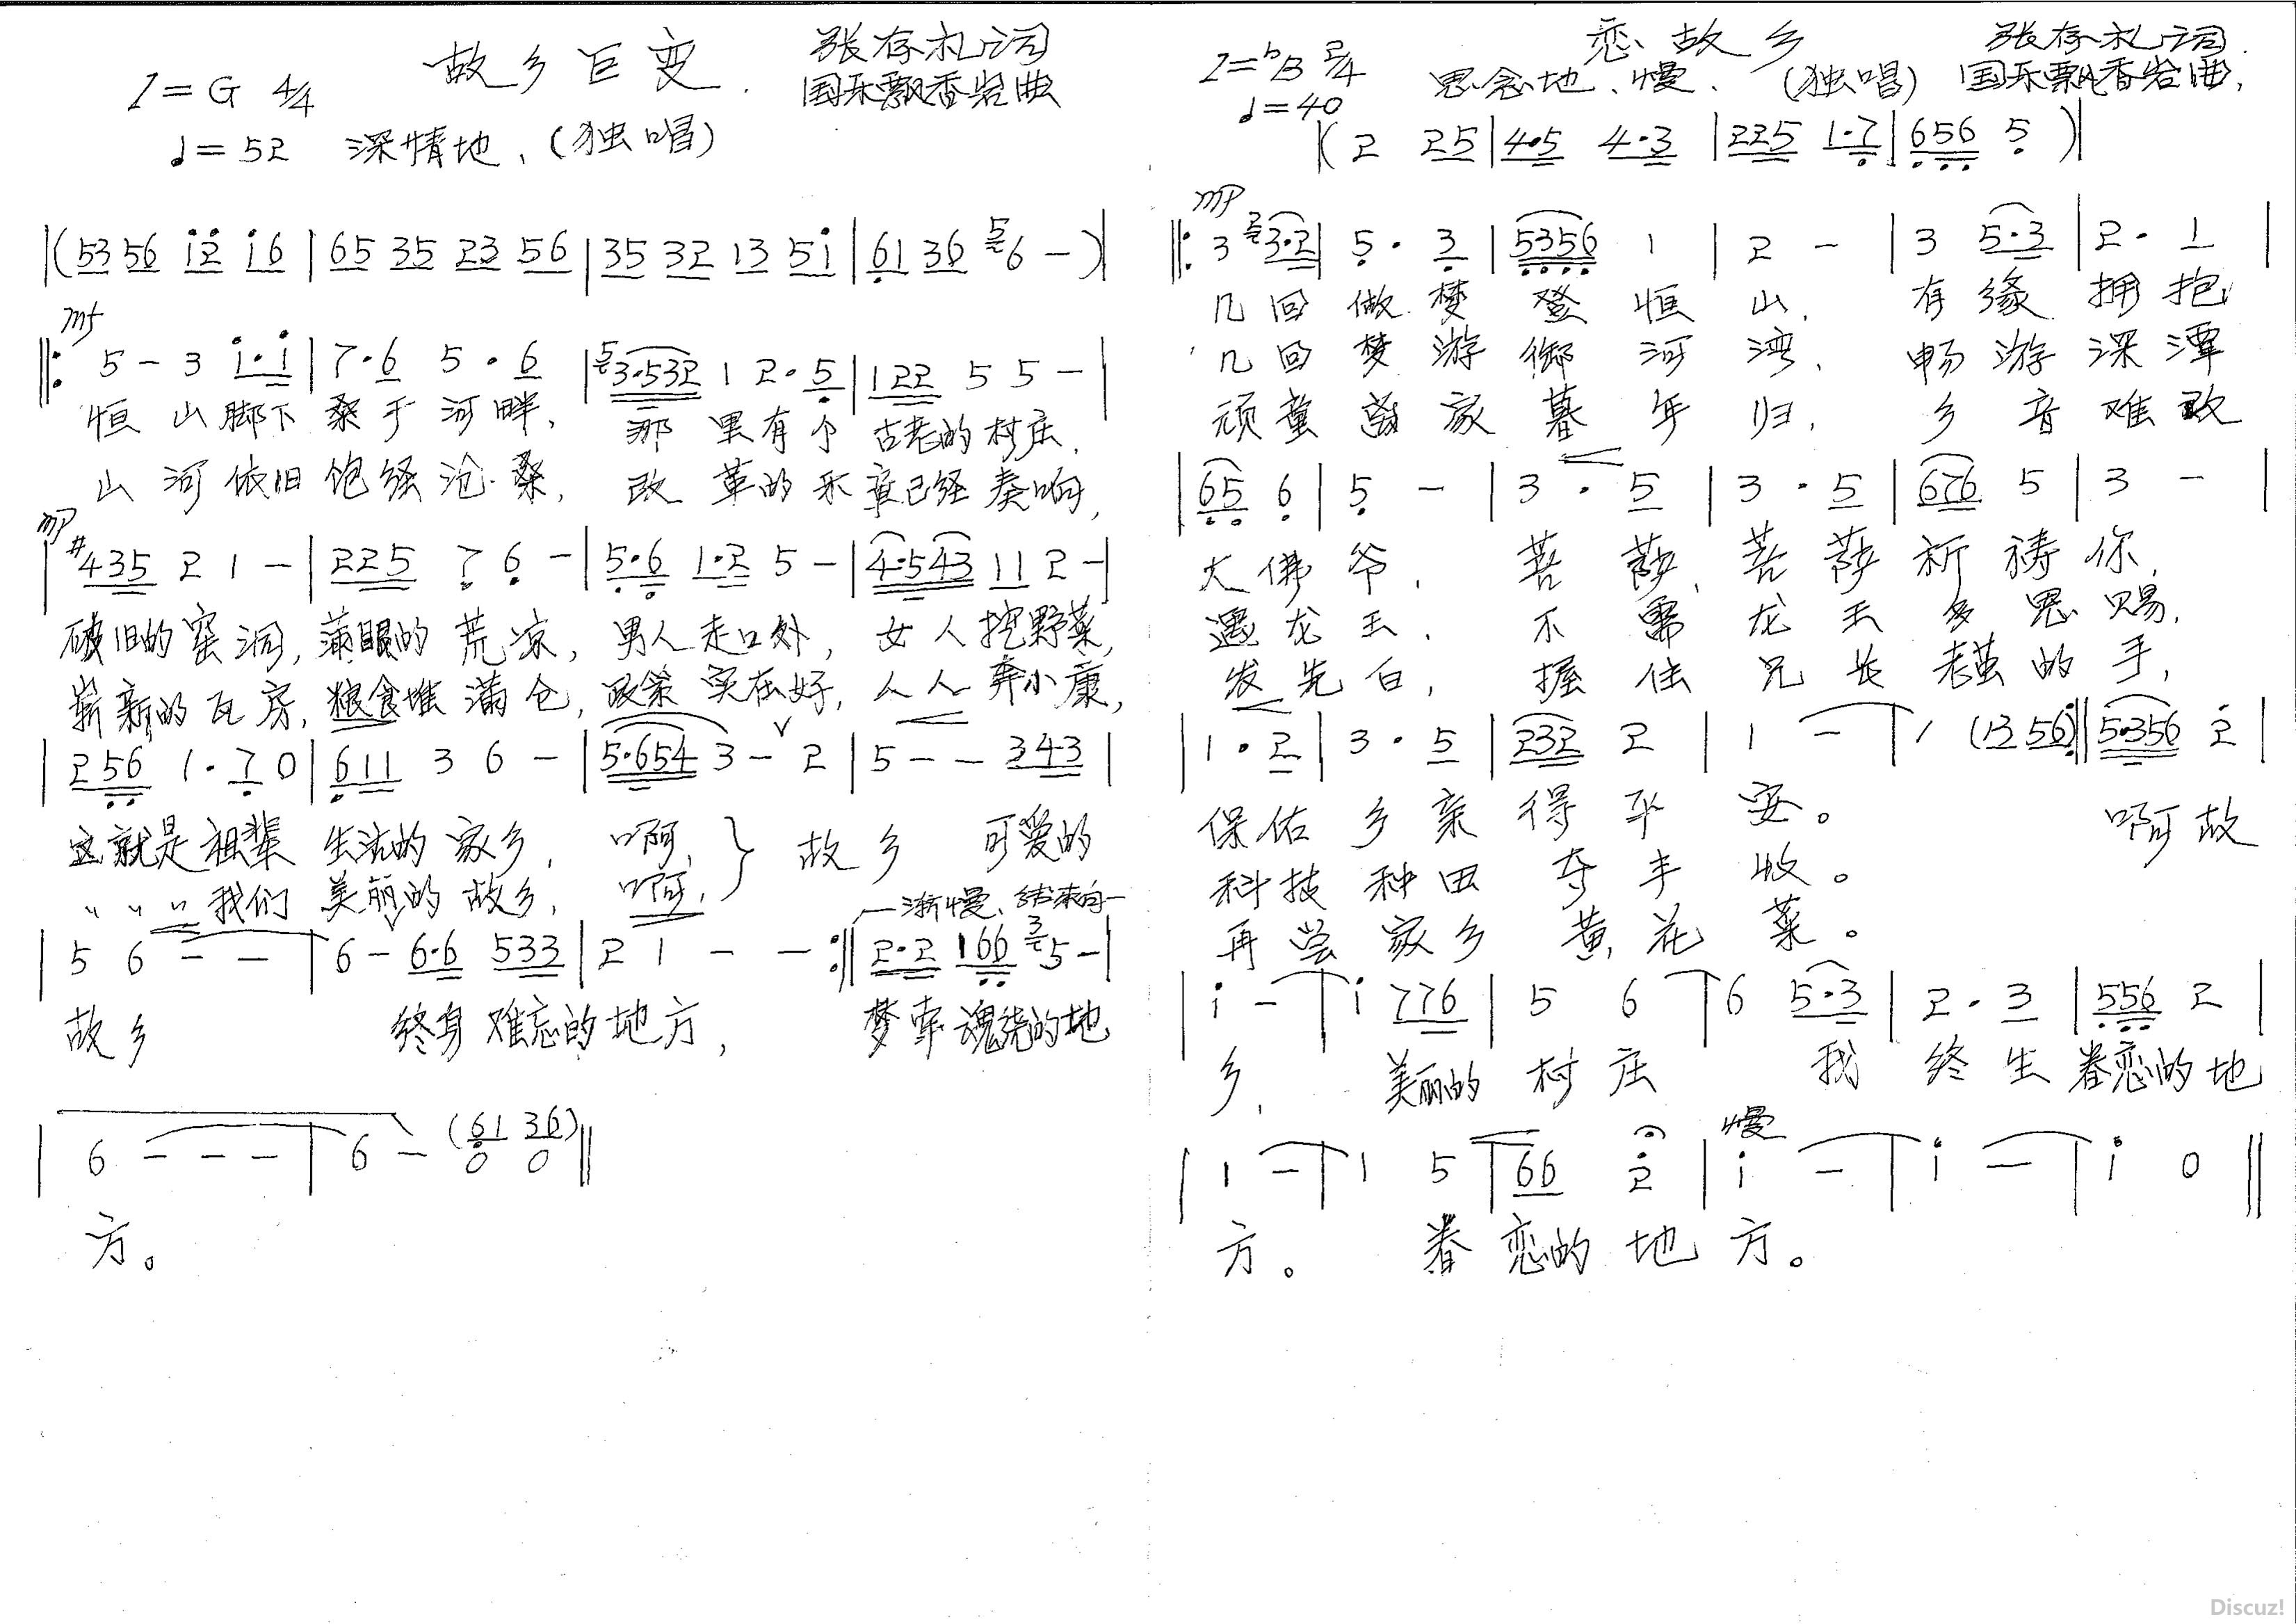 故乡巨变
张存礼词
国乐飘香岩曲
1=G 4/4
♩=52 深情地、(独唱)
|(53 56 i2 i6|65 35 23 56|35 32 13 5i|61 36 6 -)|
mf
5 - 3 i·i|7·6 5·6|3·532 1 2·5|122 5 5 -|
恒山脚下桑于河畔, 那里有个古老的村庄.
山河依旧饱经沧桑, 改革的乐章已经奏响,
mp
|#435 2 1 -|225 7 6 -|5·6 1·2 5 -|4·543 11 2 -|
破旧的窑洞, 满眼的荒凉, 男人走口外, 女人挖野菜,
崭新的瓦房, 粮食堆满仓, 政策实在好, 人人奔小康,
|256 1·7 0|611 3 6 -|5·654 3 - 2|5 - - 343|
这就是祖辈生活的家乡, 啊, } 故乡 可爱的
" " " 我们美丽的故乡, 啊,
渐慢、结束句
|5 6 - -|6 - 6·6 533|2 1 - - :||2·2 166 5 -|
故乡 终身难忘的地方, 梦牵魂绕的地
|6 - - -|6 - (61 36)||
0 0
方。
恋故乡
张存礼词.
1=bB 2/4 思念地、慢、(独唱) 国乐飘香岩曲,
♩=40
|(2 25|4·5 4·3|225 1·7|656 5)|
mp
||: 3 3·2|5·3|5356 1|2 -|3 5·3|2·1|
几回做梦登恒山, 有缘拥抱
几回梦游御河湾, 畅游深潭
顽童离家暮年归, 乡音难改
|65 6|5 -|3·5|3·5|676 5|3 -|
大佛爷, 菩萨, 菩萨祈祷你,
遇龙王, 不需龙王多恩赐,
发先白, 握住兄长老茧的手,
|1·2|3·5|232 2|1 -|1 (12 56):||5·356 2|
保佑乡亲得平安。 啊故
科技种田夺丰收。
再尝家乡黄花菜。
|i -|i 776|5 6|6 5·3|2·3|556 2|
乡, 美丽的村庄 我终生眷恋的地
慢
|1 -|1 5|66 2|i -|i -|i 0||
方。 眷恋的地方。
Discuz!